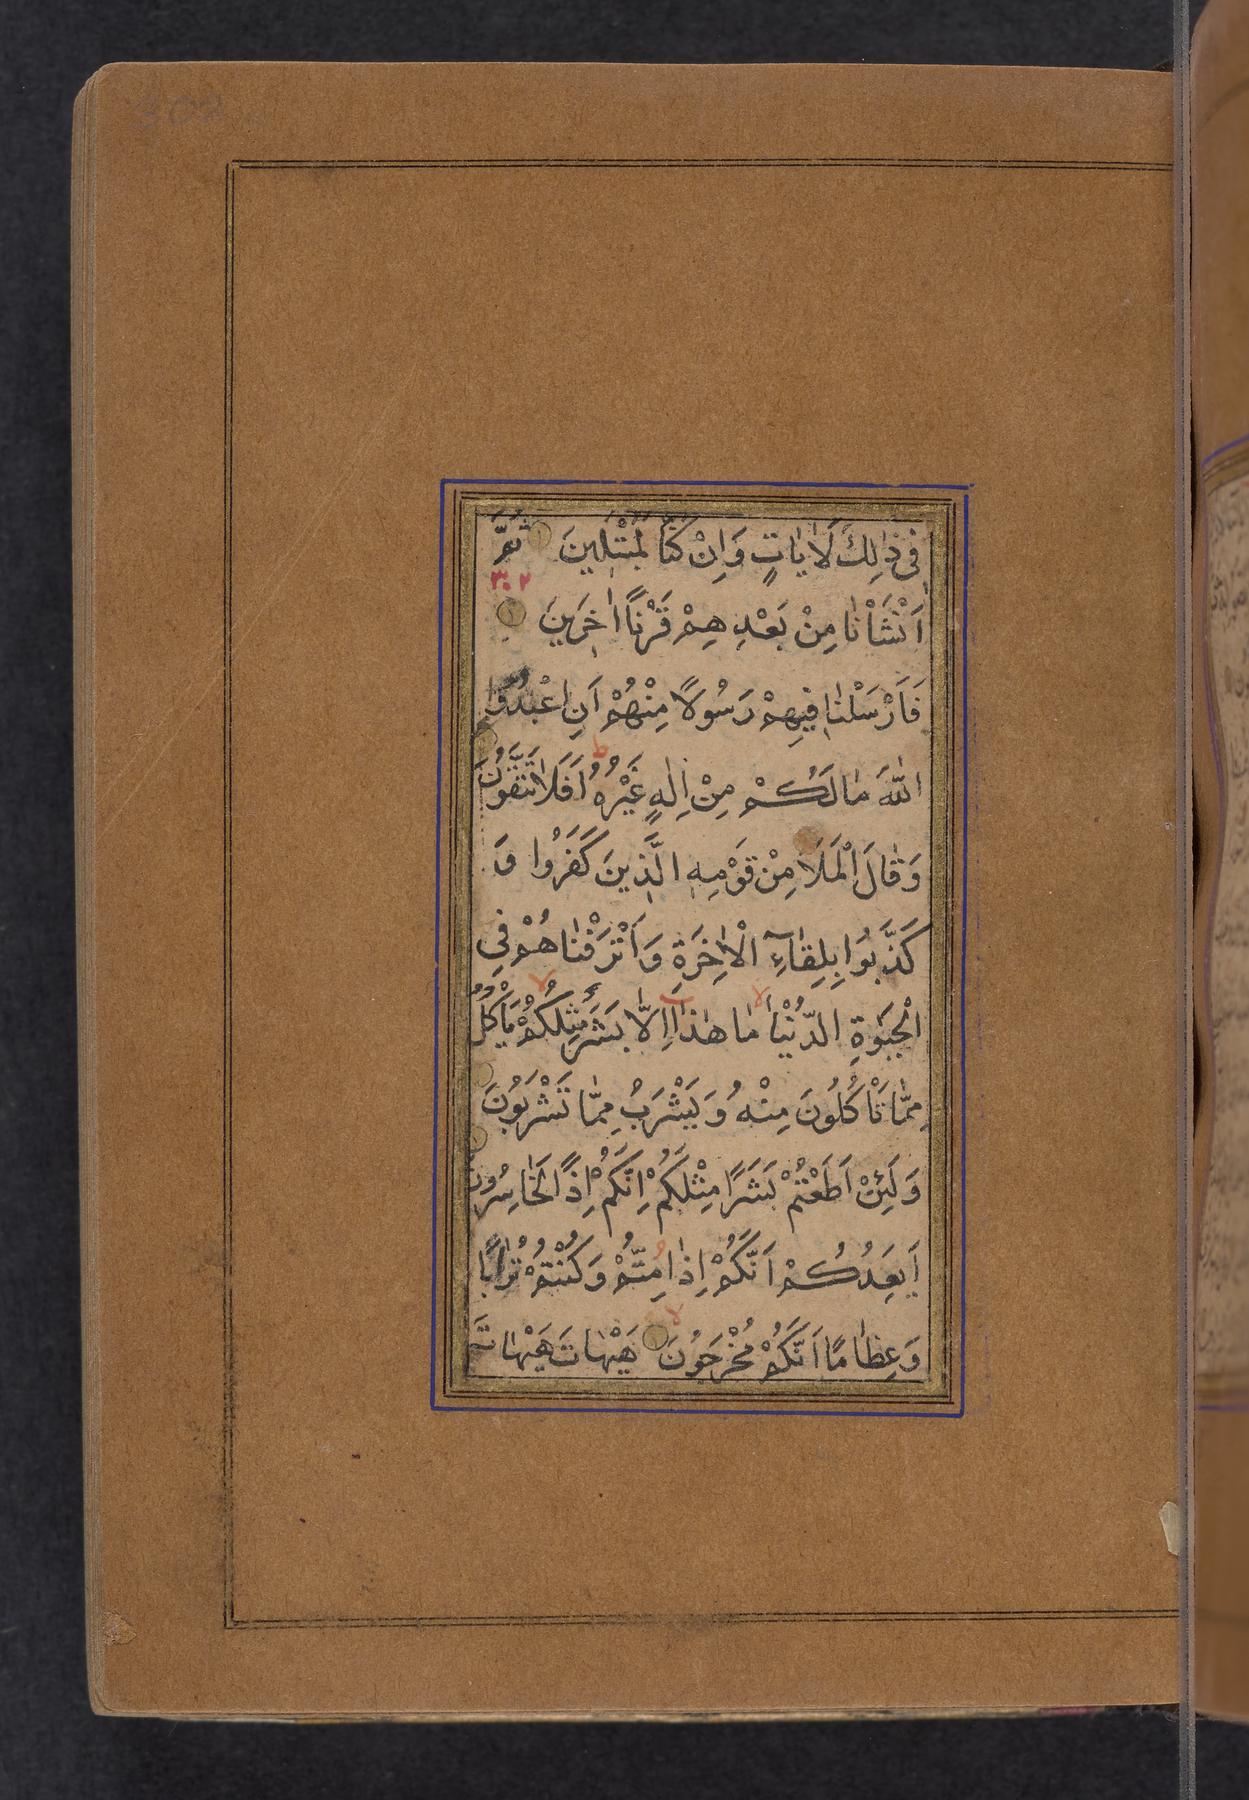 302
فِى ذٰلِكَ لَاٰيٰاتٍ وَاِنْ كُنّٰا لَمُبْتَلِينَ ثُمَّ
٣٠٢
اَنْشَأْنٰا مِنْ بَعْدِهِمْ قَرْنًا اٰخَرِينَ
فَاَرْسَلْنٰا فِيهِمْ رَسُولًا مِنْهُمْ اَنِ اعْبُدُوا
اللّٰهَ مٰا لَكُمْ مِنْ اِلٰهٍ غَيْرُهُ ط اَفَلَا تَتَّقُونَ
وَقٰالَ الْمَلَاُ مِنْ قَوْمِهِ الَّذِينَ كَفَرُوا وَ
كَذَّبُوا بِلِقٰاۤءِ الْاٰخِرَةِ وَاَتْرَفْنٰاهُمْ فِى
الْحَيٰوةِ الدُّنْيٰا لا مٰا هٰذٰا اِلّٰا بَشَرٌ مِثْلُكُمْ لا يَأْكُلُ
مِمّٰا تَأْكُلُونَ مِنْهُ وَيَشْرَبُ مِمّٰا تَشْرَبُونَ
وَلَئِنْ اَطَعْتُمْ بَشَرًا مِثْلَكُمْ اِنَّكُمْ اِذًا لَخٰاسِرُونَ
اَيَعِدُكُمْ اَنَّكُمْ اِذٰا مِتُّمْ وَكُنْتُمْ تُرٰابًا
وَعِظٰامًا اَنَّكُمْ مُخْرَجُونَ لا هَيْهٰاتَ هَيْهٰاتَ